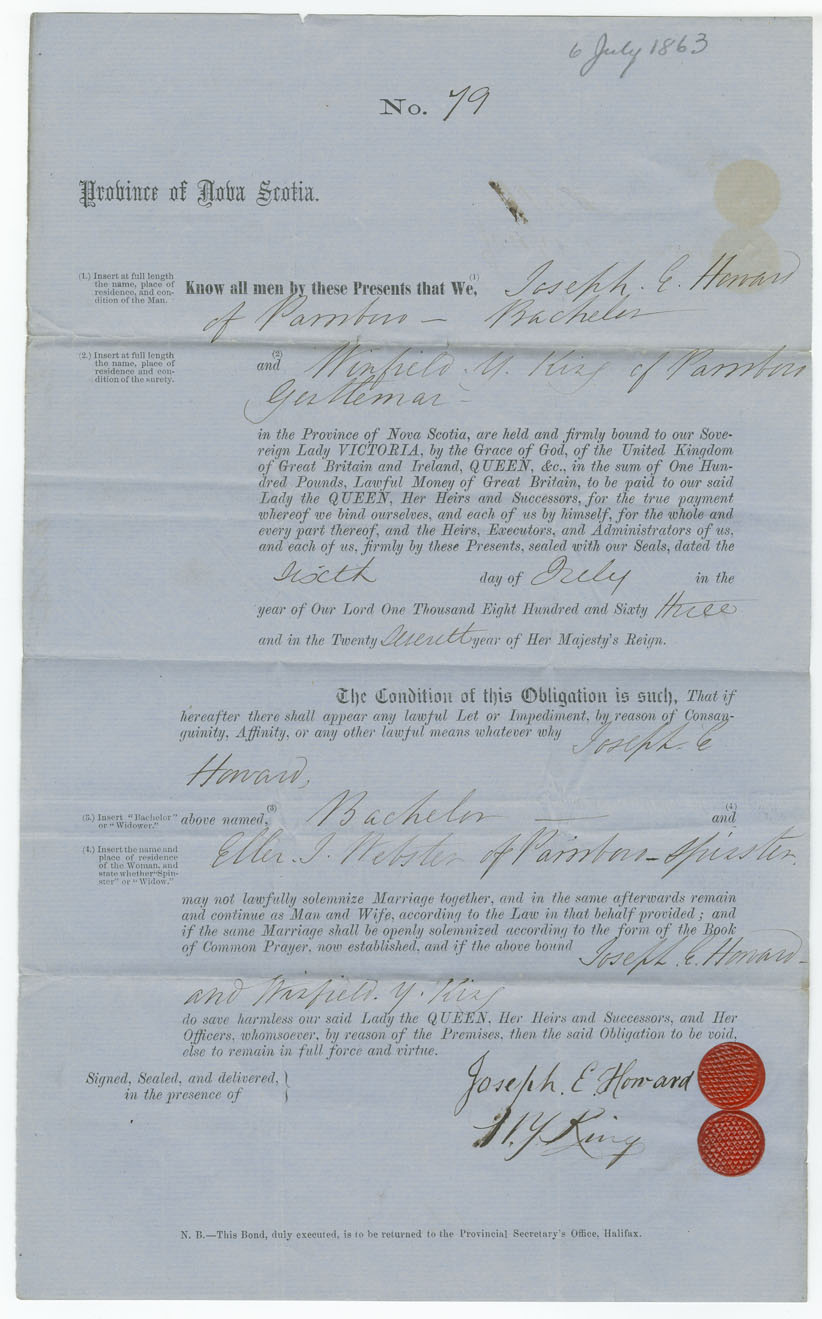 6 July 1863
No. 79
Province of Nova Scotia.
(1.) Insert at full length
the name, place of
residence, and con-
dition of the Man.
Know all men by these Presents that We,(1) Joseph. E. Howard
of Parrsboro — Bachelor
(2.) Insert at full length
the name, place of
residence and con-
dition of the surety.
and (2) Winfield. Y. King of Parrsboro
Gentleman —
in the Province of Nova Scotia, are held and firmly bound to our Sove-
reign Lady VICTORIA, by the Grace of God, of the United Kingdom
of Great Britain and Ireland, QUEEN, &c., in the sum of One Hun-
dred Pounds, Lawful Money of Great Britain, to be paid to our said
Lady the QUEEN, Her Heirs and Successors, for the true payment
whereof we bind ourselves, and each of us by himself, for the whole and
every part thereof, and the Heirs, Executors, and Administrators of us,
and each of us, firmly by these Presents, sealed with our Seals, dated the
Sixth day of July in the
year of Our Lord One Thousand Eight Hundred and Sixty three
and in the Twenty Seventh year of Her Majesty's Reign.
The Condition of this Obligation is such, That if
hereafter there shall appear any lawful Let or Impediment, by reason of Consan-
guinity, Affinity, or any other lawful means whatever why Joseph. E
Howard,
(3.) Insert "Bachelor"
or "Widower."
above named,(3) Bachelor — (4) and
(4.) Insert the name and
place of residence
of the Woman, and
state whether "Spin-
ster" or "Widow."
Ellen. J. Webster of Parrsboro — Spinster.
may not lawfully solemnize Marriage together, and in the same afterwards remain
and continue as Man and Wife, according to the Law in that behalf provided; and
if the same Marriage shall be openly solemnized according to the form of the Book
of Common Prayer, now established, and if the above bound Joseph. E. Howard —
and Winfield. Y. King
do save harmless our said Lady the QUEEN, Her Heirs and Successors, and Her
Officers, whomsoever, by reason of the Premises, then the said Obligation to be void,
else to remain in full force and virtue.
Signed, Sealed, and delivered,
in the presence of
Joseph. E. Howard
W. Y. King
N. B.—This Bond, duly executed, is to be returned to the Provincial Secretary's Office, Halifax.